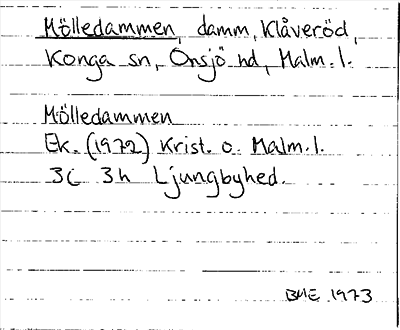 Mölledammen, damm, Klåveröd,
Konga sn, Onsjö hd, Malm. l.
Mölledammen
Ek. (1972) Krist. o. Malm. l.
3C 3h Ljungbyhed.
BME 1973